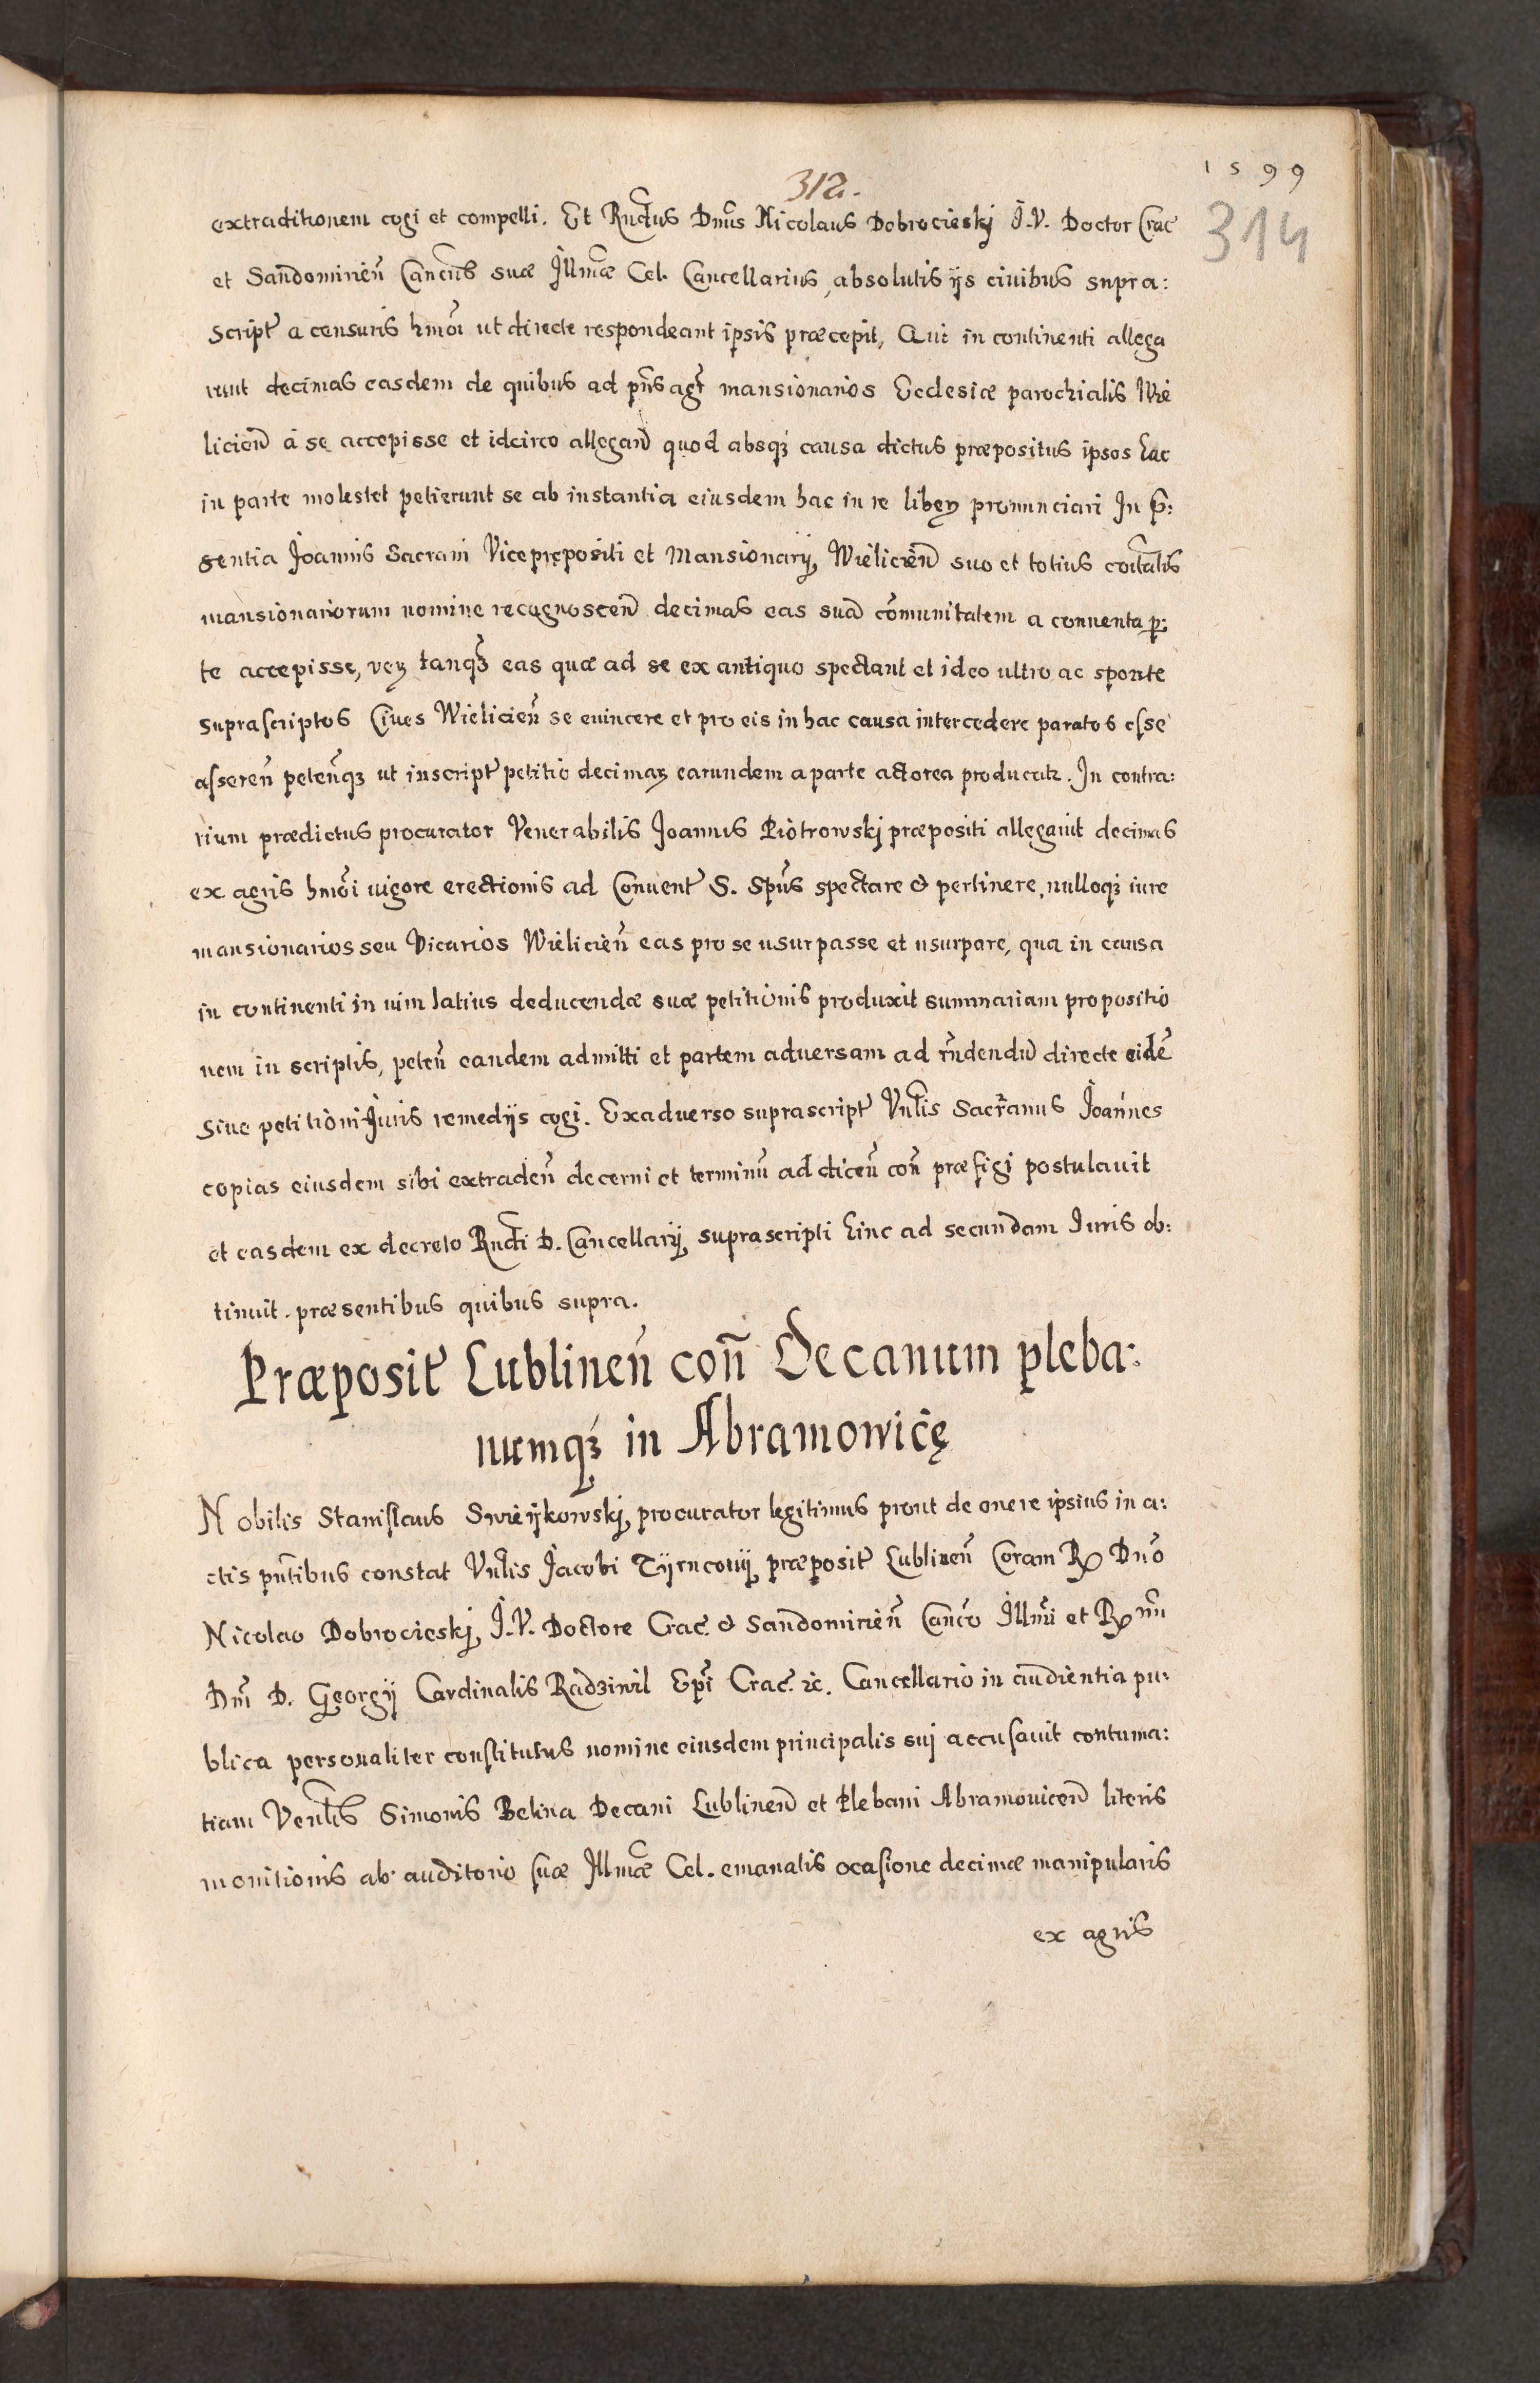 1599
312.
314
extraditionem cogi et compelli. Et Rndus Dnus Nicolaus Dobrocieskj J.V. Doctor Crac
et Sandomirien̄ Cancus suæ Illmæ Cel. Cancellarius, absolutis ijs ciuibus supra:
script̃ a censuris hmõi ut directe respondeant ipsis præcepit, Qui in continenti allega
runt decimas easdem de quibus ad pñs agr̃ mansionarios Ecclesiæ parochialis Wie
licien̄ á se accepisse et idcirco allegan̄ quod absqꝫ causa dictus præpositus ipsos hac
in parte molestet petierunt se ab instantia eiusdem hac in re liberꝫ pronunciari In p̄:
sentia Joannis Sacrani Viceprępositi et Mansionarij, Wielicien̄ suo et totius coitatis
mansionariorum nomine recognoscen̄ decimas eas suā cõmunitatem a conuenta p:
te accepisse, veꝝ tanqꝫ eas quæ ad se ex antiquo spectant et ideo ultro ac sponte
supraſcriptos Ciues Wielicien̄ se euincere et pro eis in hac causa intercedere paratos eſse
aſseren̄ peten̄qꝫ ut inscript̃ petitio decimaꝝ earundem a parte actorea producatr. In contra:
rium prædictus procurator Venerabilis Joannis Piotrowskj præpositi allegauit decimas
ex agris hmõi uigore erectionis ad Conuent̃ S. Spũs spectare & pertinere, nulloqꝫ iure
mansionarios seu Vicarios Wielicien̄ eas pro se usurpasse et usurpare, qua in causa
in continenti in uim latius deducendæ suæ petitionis produxit summariam propositio
nem in scriptis, peten̄ eandem admitti et partem aduersam ad rñdendũ directe eidẽ
siue petitioni Juris remedijs cogi. Exaduerso suprascript̃ Vnlis Sacranus Joannes
copias eiusdem sibi extraden̄ decerni et terminũ ad dicen̄ con̄ præfigi postulauit
et easdem ex decreto Rndi D. Cancellarij suprascripti hinc ad secundam Juris ob:
tinuit. præsentibus quibus supra.
Præposit̃ Lublinen̄ con̄ Decanum pleba:
numqꝫ in Abramowicę
Nobilis Stanislaus Swieijkowskj, procurator legitimus prout de onere ipsius in a:
ctis pñtibus constat Vnlis Jacobi Tijrncouij præposit̃ Lublinen̄ Coram R Dnõ
Nicolao Dobrocieskj, J.V. Doctore Crac. & Sandomirien̄ Canco Illmi et R mi
Dni D. Georgij Cardinalis Radziwil Epi Crac. ꝛc. Cancellario in audientia pu:
blica personaliter conſtitutus nomine eiusdem principalis suj accuſauit contuma:
tiam Venlis Simonis Belina Decani Lublinen̄ et Plebani Abramouicen̄ literis
monitionis ab auditorio ſuæ Illmæ Cel. emanatis ocaſione decimæ manipularis
ex agris